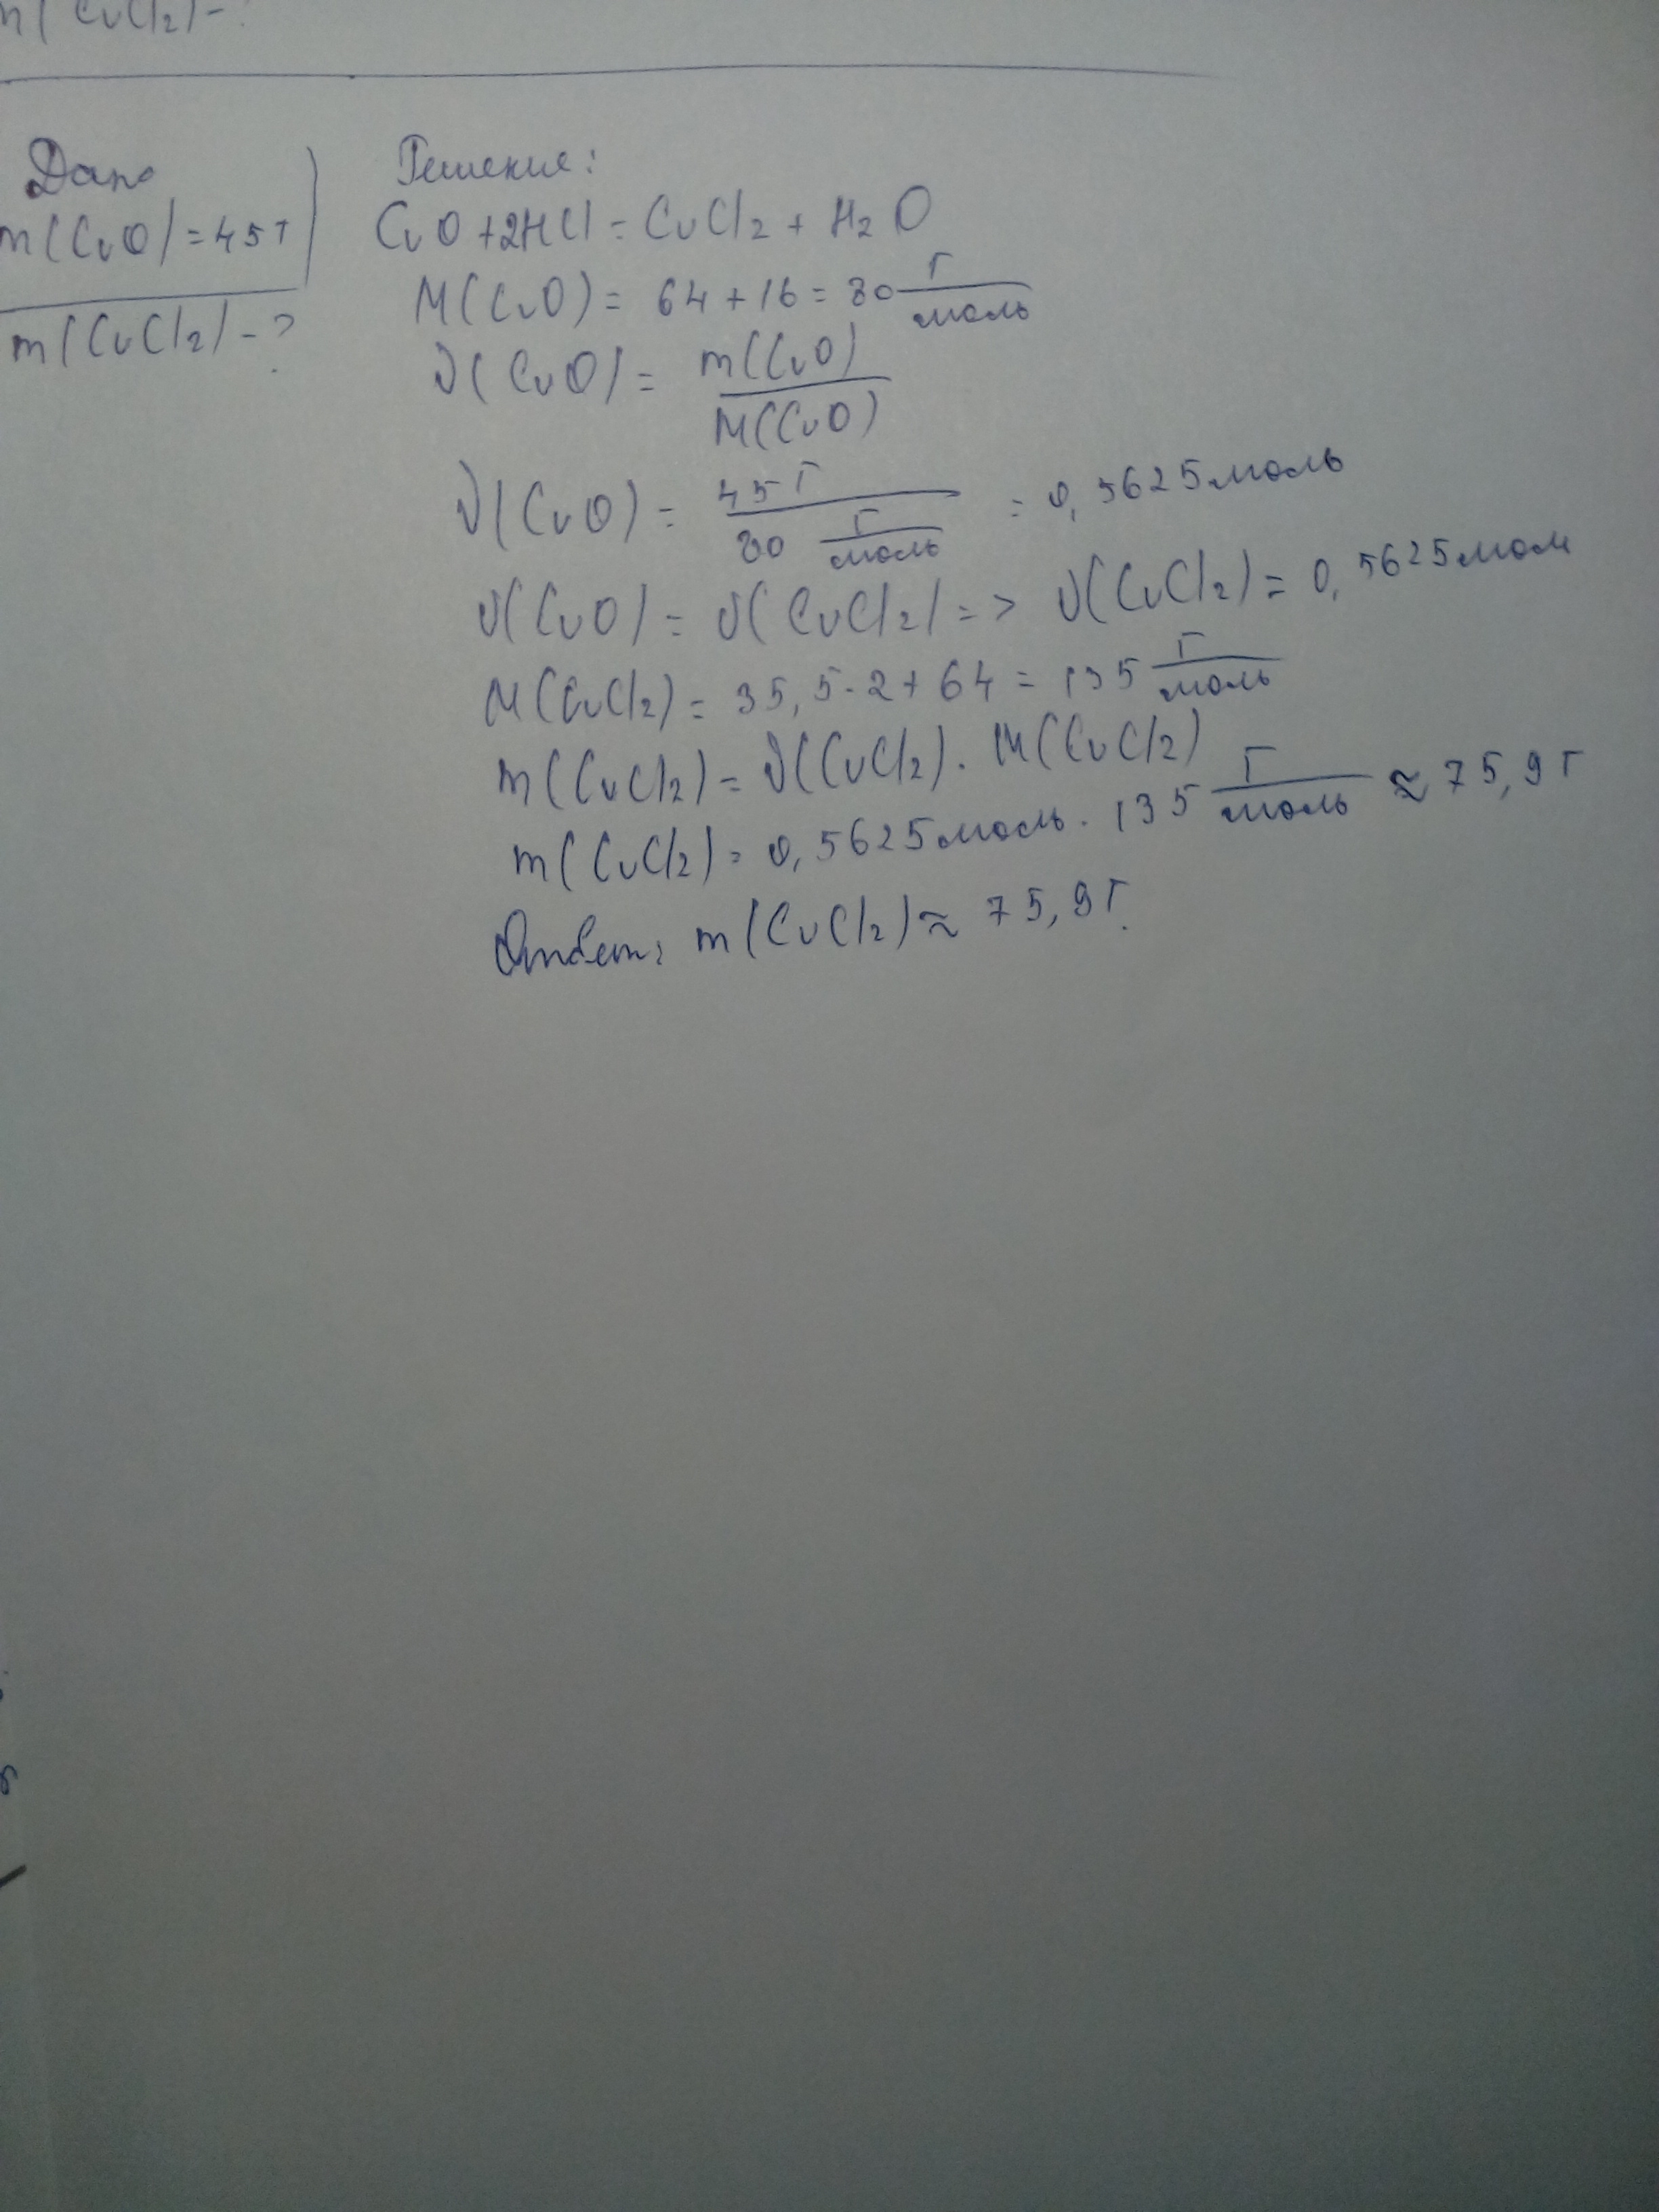 m(CuCl₂)-?
Дано
m(CuO)=45г
m(CuCl₂)-?
Решение:
CuO+2HCl=CuCl₂+H₂O
M(CuO)=64+16=80 г/моль
ν(CuO)= m(CuO)/M(CuO)
ν(CuO)= 45г/80 г/моль =0,5625моль
ν(CuO)=ν(CuCl₂)=> ν(CuCl₂)=0,5625моль
M(CuCl₂)=35,5·2+64=135 г/моль
m(CuCl₂)=ν(CuCl₂)·M(CuCl₂)
m(CuCl₂)=0,5625моль·135 г/моль ≈75,9г
Ответ: m(CuCl₂)≈75,9г.